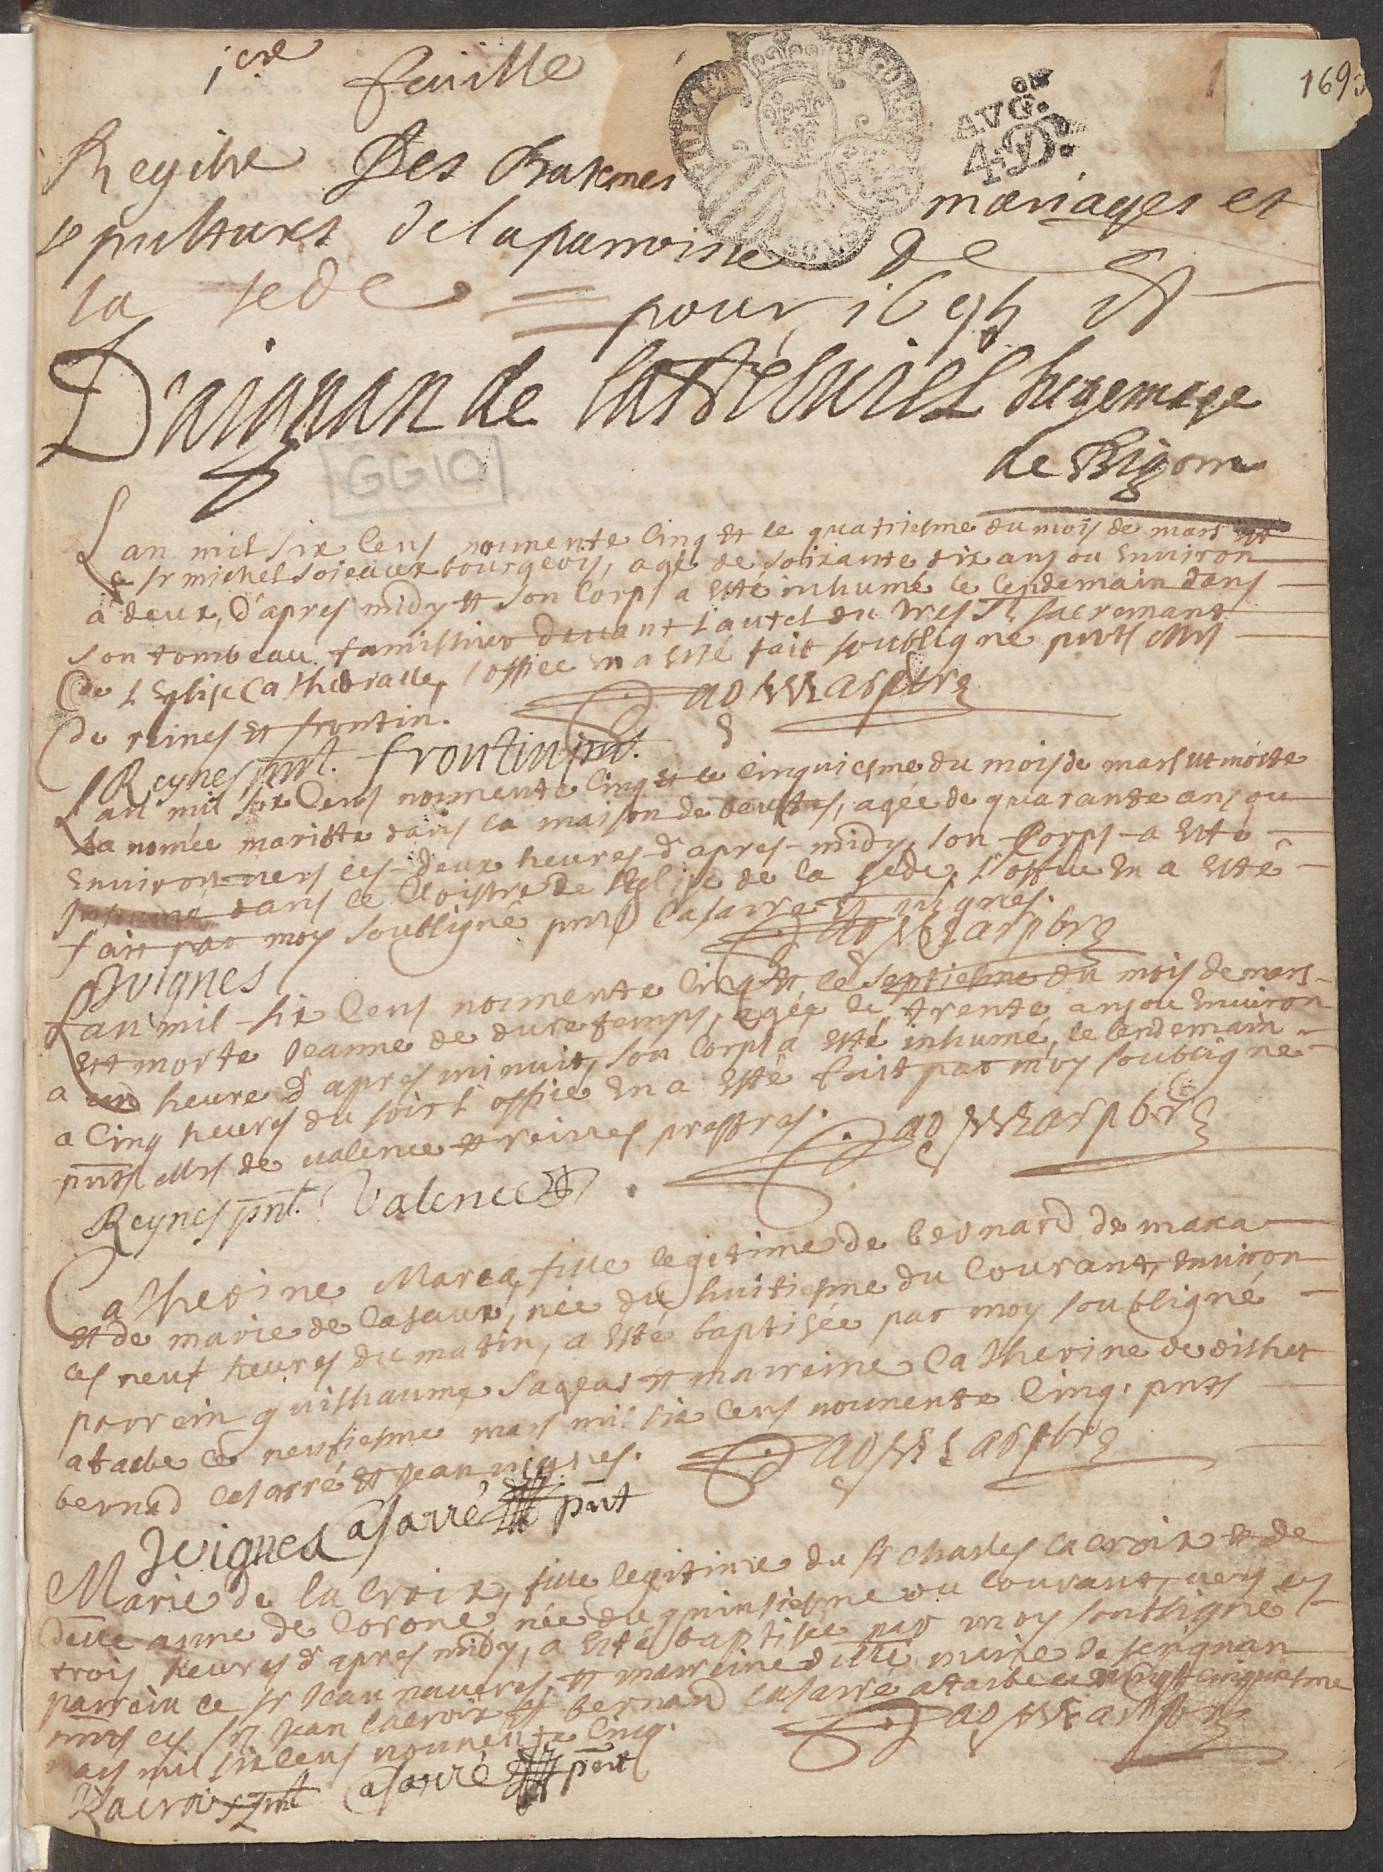 1ere feuille
AVG.
4. D.
1695
Registre Des Batemes mariages et
sepultures de la parroisse de
la sede = pour 1695
D'aignan de Juge mage
de Bigorre
GG10
Lan mil six cens nonnente cinq et le quatriesme du mois de mars est
sr michel soieaux bourgeois, agé de soixante dix ans ou environ
a deux, d'apres midy et son corps a esté inhumé le lendemain dans
son tombeau famillier devant l'autel du tres st sacremant
de l'Eglise Cathedralle, l'office en a esté fait soubligné pnts Mrs
de reines et frontin.
Reynes pnt. frontin pnt.
Lan mil six cens nonnente cinq et le cinquiesme du mois de mars est morte
la nomée mariotte dans la maison de, agée de quarante ans ou
environ vers les deux heures d'apres midy son Corps a esté
dans le cloistre de l'Eglise de la sede, l'office en a esté
fait par moy soubligné pnts casarre et vignes.
Jvignes
Lan mil six cens nonnente cinq et le septiesme du mois de mars
est morte Jeanne de duretemps, agée de trente ans ou environ
a une heure d'apres minuit, son corps a esté inhumé, le lendemain
a cinq heures du soir l'office en a esté fait par moy soubligné
pnts Mrs de valence et reines prestres.
Reynes pnt. Valence
Catherine Maraa, fille legitime de bernard de maraa
et de marie de casaux, née du huitiesme du courant, environ
les neuf heures du matin, a esté baptisée par moy soubligné
parrein guilhaume sageas et marreine Catherine de dishet
a tarbe le neufiesme mars mil six cens nonnente cinq. pnts
bernad casarré et Jean vignes.
Jvignes casarré pnt
Marie de lacroix, fille legitime du sr charles lacroix et de
delle anne de corone, née du quinsiesme du courant, vers les
trois heures d'apres midy, a esté baptisée par moy soubligné
parrein le sr Jean naveres, et marreine dlle marie de serignan
pnts les srs Jean lacroix et bernard casarré a tarbe le vingt cinquiesme
mars mil six cens nonnente cinq.
Lacroix pnt casarré pnt